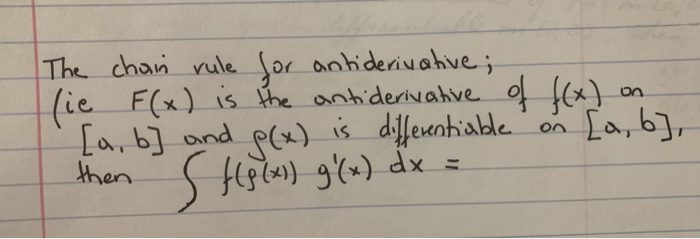 The chain rule for antiderivative;
(ie F(x) is the antiderivative of f(x) on
[a, b] and g(x) is differentiable on [a, b],
then ∫ f(g(x)) g'(x) dx =